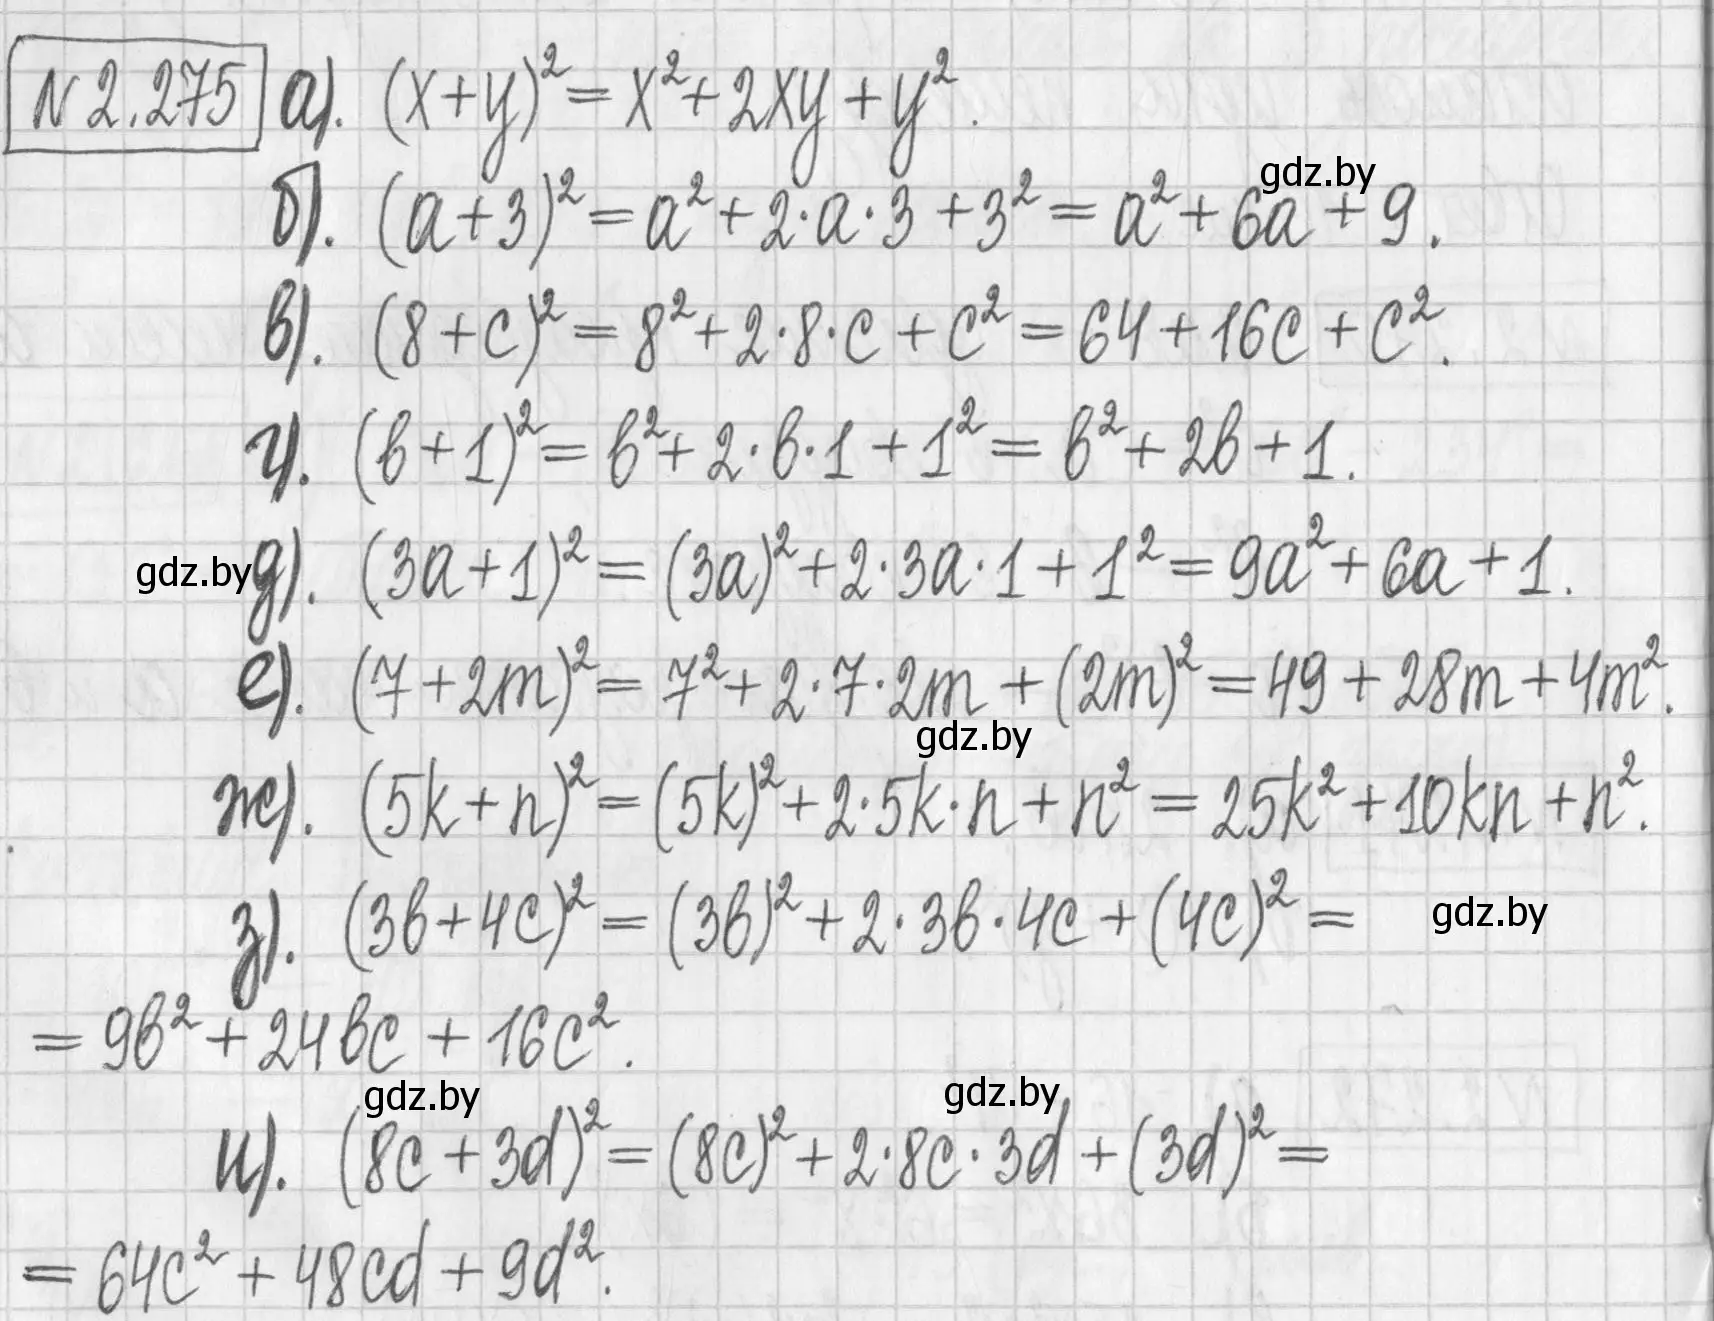 N 2.275 а). (x+y)² = x² + 2xy + y².
gdz.by
б). (a+3)² = a² + 2·a·3 + 3² = a² + 6a + 9.
в). (8+c)² = 8² + 2·8·c + c² = 64 + 16c + c².
г). (b+1)² = b² + 2·b·1 + 1² = b² + 2b + 1.
gdz.by д). (3a+1)² = (3a)² + 2·3a·1 + 1² = 9a² + 6a + 1.
е). (7+2m)² = 7² + 2·7·2m + (2m)² = 49 + 28m + 4m².
gdz.by
ж). (5k+n)² = (5k)² + 2·5k·n + n² = 25k² + 10kn + n².
з). (3b+4c)² = (3b)² + 2·3b·4c + (4c)² = gdz.by
= 9b² + 24bc + 16c².
gdz.by gdz.by
и). (8c+3d)² = (8c)² + 2·8c·3d + (3d)² =
= 64c² + 48cd + 9d².